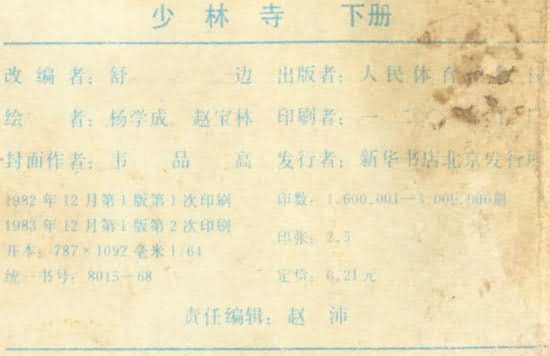 少林寺 下册
改编者：舒 边 出版者：人民体育
绘 者：杨学成 赵宝林 印刷者：一二
封面作者：韦品高 发行者：新华书店北京发行所
1982年12月第1版第1次印刷 印数：1,600,001—3,000,000册
1983年12月第1版第2次印刷
印张：2.5
开本：787×1092毫米1/64
统一书号：8015—68 定价：0.21元
责任编辑：赵 沛